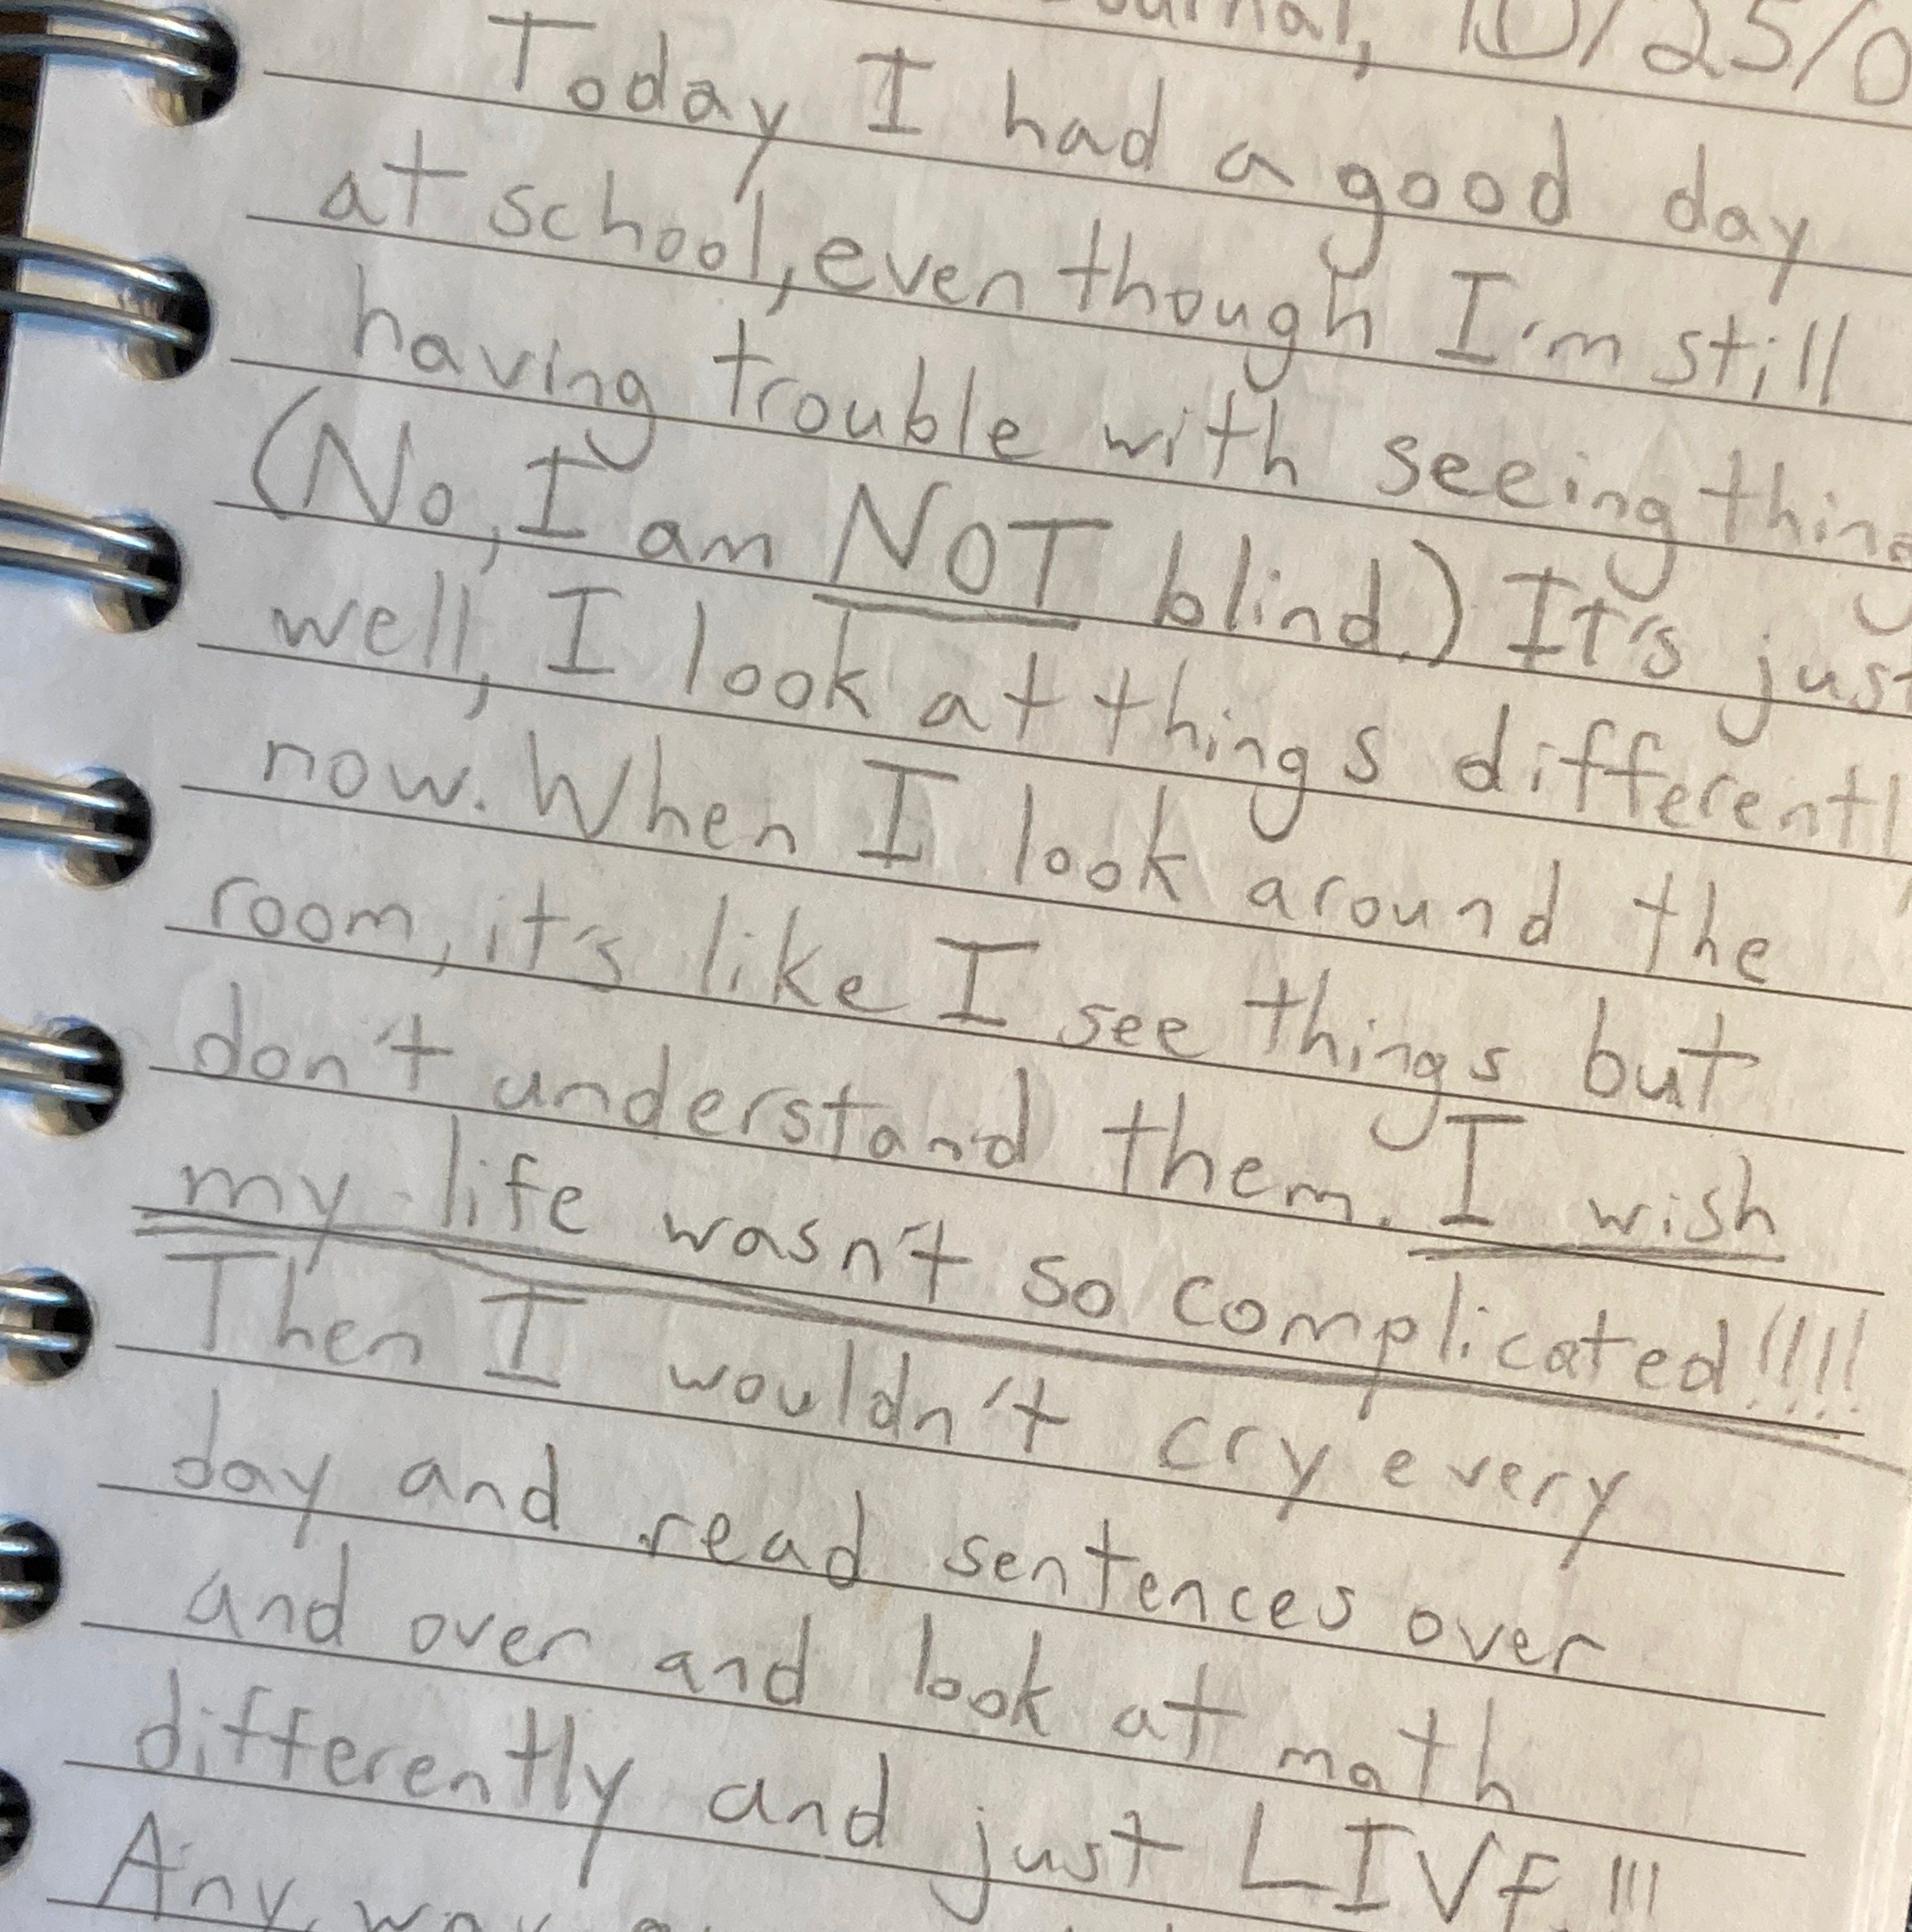 Journal, 10/25/0
Today I had a good day
at school, even though I'm still
having trouble with seeing thing
(No, I am NOT blind.) It's just
well, I look at things differentl
now. When I look around the
room, it's like I see things but
don't understand them. I wish
my life wasn't so complicated!!!!!
Then I wouldn't cry every
day and read sentences over
and over and look at math
differently and just LIVE!!!
Any way